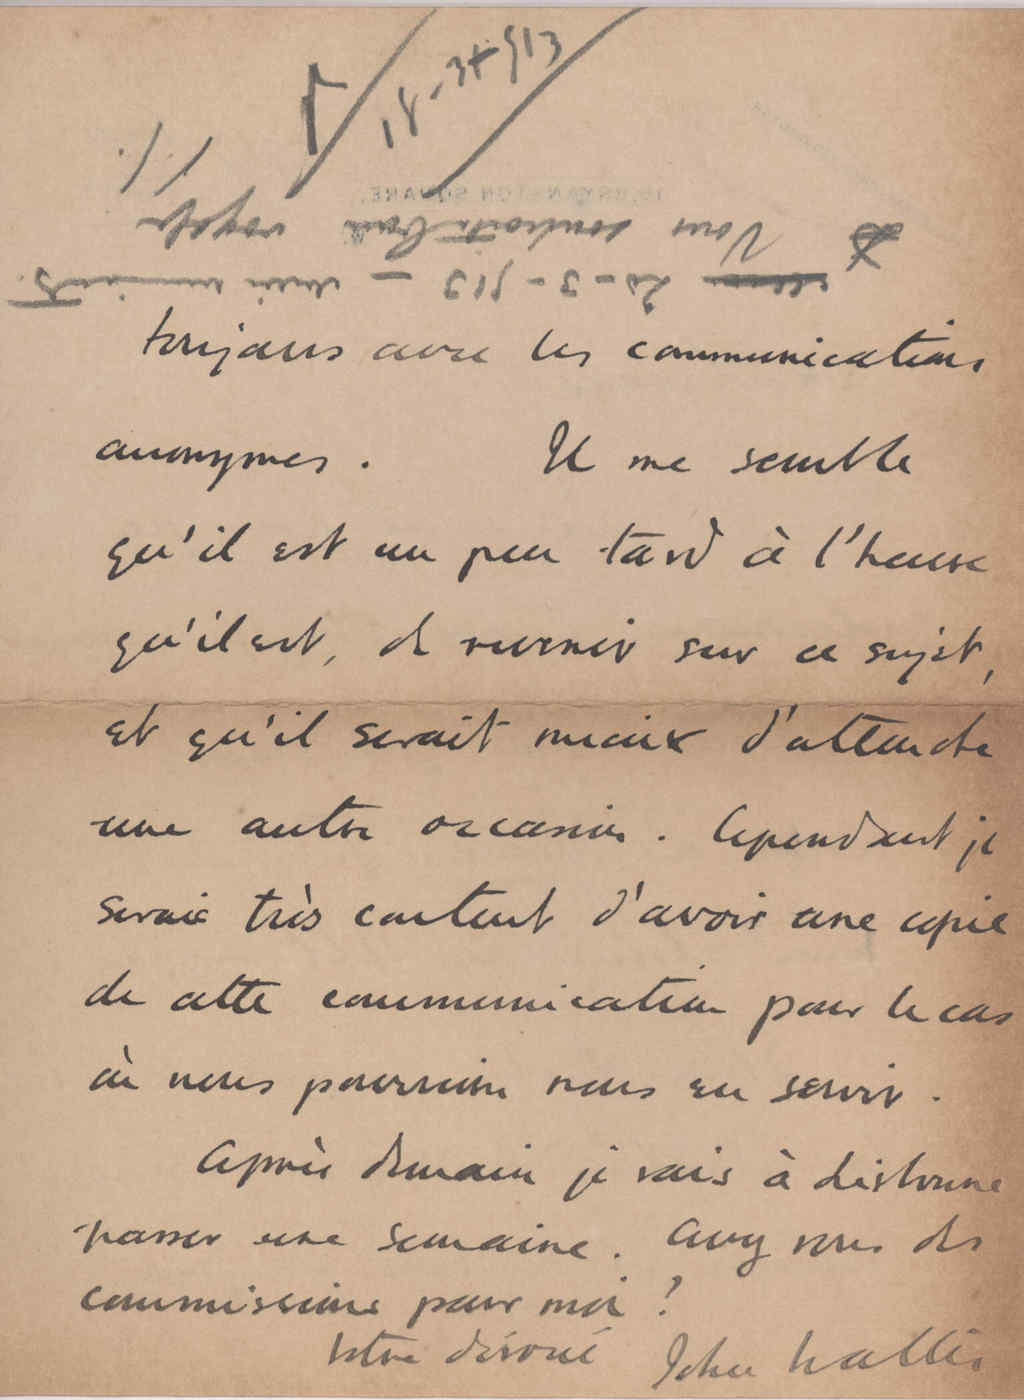 18-3-913
BRYANSTON SQUARE.
20-3-913
toujours avec les communications
anonymes. Il me semble
qu'il est un peu tard à l'heure
qu'il est, de revenir sur ce sujet,
et qu'il serait mieux d'attendre
une autre occasion. Cependant je
serais très content d'avoir une copie
de cette communication pour le cas
où nous pourrions nous en servir.
Après demain je vais à Lisbonne
passer une semaine. Avez vous des
commissions pour moi?
Votre dévoué John